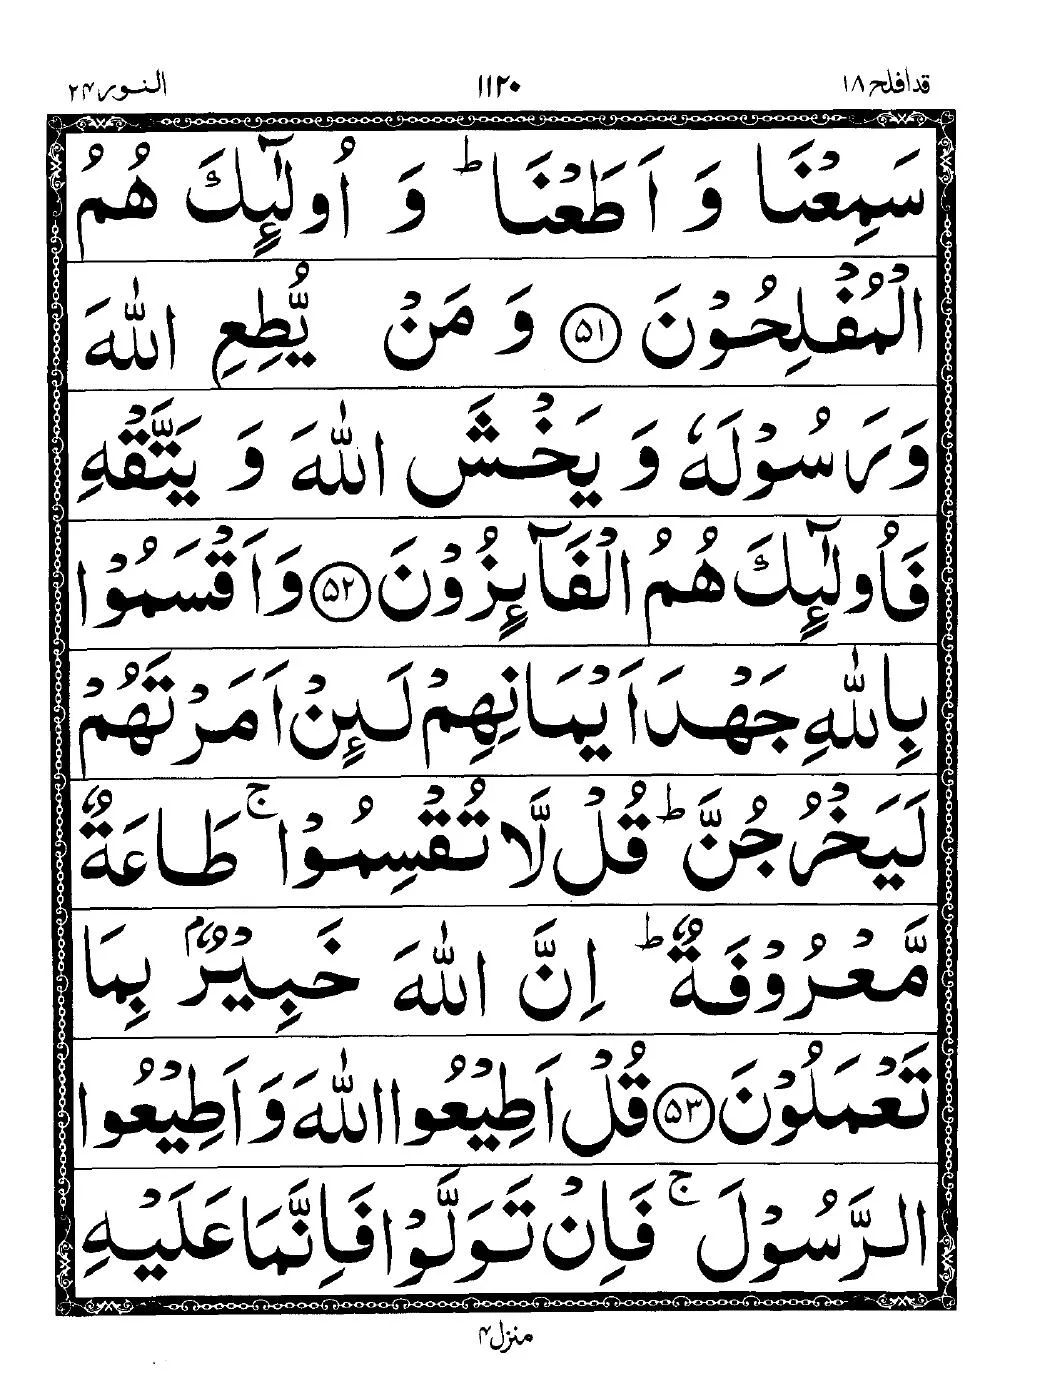 قد افلح ۱۸
۱۱۲۰
النور ۲۴
سَمِعْنَا وَ اَطَعْنَا ؕ وَ اُولٰٓئِكَ هُمُ
الْمُفْلِحُوْنَ ۵۱ وَ مَنْ يُّطِعِ اللّٰهَ
وَ رَسُوْلَهٗ وَ يَخْشَ اللّٰهَ وَ يَتَّقْهِ
فَاُولٰٓئِكَ هُمُ الْفَآئِزُوْنَ ۵۲ وَ اَقْسَمُوْا
بِاللّٰهِ جَهْدَ اَيْمَانِهِمْ لَئِنْ اَمَرْتَهُمْ
لَيَخْرُجُنَّ ؕ قُلْ لَّا تُقْسِمُوْا ۚ طَاعَةٌ
مَّعْرُوْفَةٌ ؕ اِنَّ اللّٰهَ خَبِيْرٌۢ بِمَا
تَعْمَلُوْنَ ۵۳ قُلْ اَطِيْعُوا اللّٰهَ وَ اَطِيْعُوا
الرَّسُوْلَ ۚ فَاِنْ تَوَلَّوْا فَاِنَّمَا عَلَيْهِ
منزل ۴